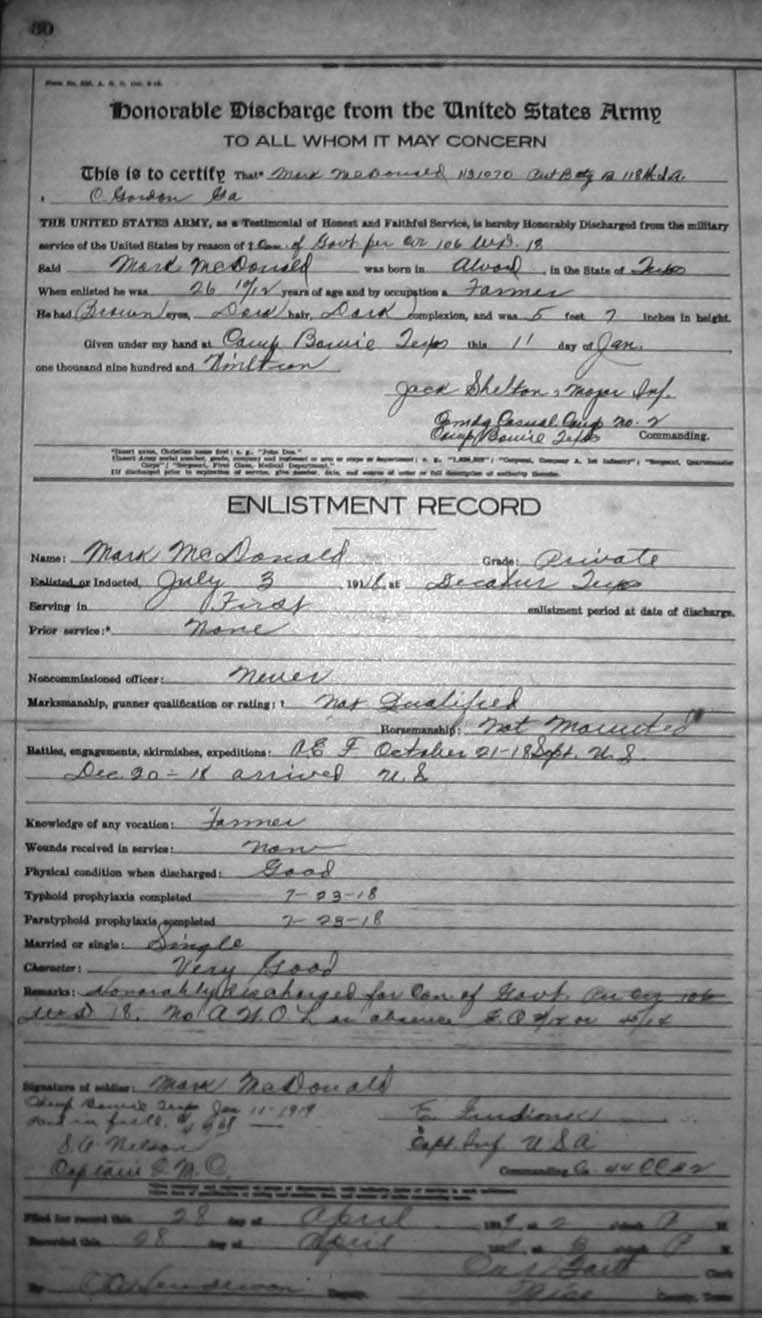 80
Honorable Discharge from the United States Army
TO ALL WHOM IT MAY CONCERN
This is to certify That* Mark McDonald 1131070 Btry B 118th F.A.
C. Gordon Ga
THE UNITED STATES ARMY, as a Testimonial of Honest and Faithful Service, is hereby Honorably Discharged from the military
service of the United States by reason of † Con. of Govt per Cir 106 W.D. 18
Said Mark McDonald was born in Alvord, in the State of Texas
When enlisted he was 26 10/12 years of age and by occupation a Farmer
He had Brown eyes, Dark hair, Dark complexion, and was 5 feet 7 inches in height.
Given under my hand at Camp Bowie Texas this 11 day of Jan.,
one thousand nine hundred and
Jack Shelton, Major Inf.
Comdg Casual Camp no. 2
Camp Bowie Texas Commanding.
*Insert name, Christian name first; e. g., "John Doe."
ENLISTMENT RECORD
Name: Mark McDonald Grade: Private
Enlisted or Inducted, July 3, 1918, at Decatur Texas
Serving in First enlistment period at date of discharge.
Prior service:* None
Noncommissioned officer: Never
Marksmanship, gunner qualification or rating: † Not Qualified
Horsemanship: Not Mounted
Battles, engagements, skirmishes, expeditions: A E F October 21-18 Sept. U.S.
Dec. 20-18 arrived U.S
Knowledge of any vocation: Farmer
Wounds received in service: None
Physical condition when discharged: Good
Typhoid prophylaxis completed 7-23-18
Paratyphoid prophylaxis completed 7-23-18
Married or single: Single
Character: Very Good
Remarks: Honorably discharged for Con of Govt Per Cir 106
W D 18. No A W O L or absence
Signature of soldier: Mark McDonald
Camp Bowie Texas Jan 11-1919
in full
S. A. Nelson
Captain Q. M. C.
Capt. Inf U S A
Commanding Co.
Filed for record this 28 day of April 1919 at 2 o'clock P M.
Recorded this 28 day of April 1919 at o'clock P M.
Clerk
By Deputy. Wise County, Texas